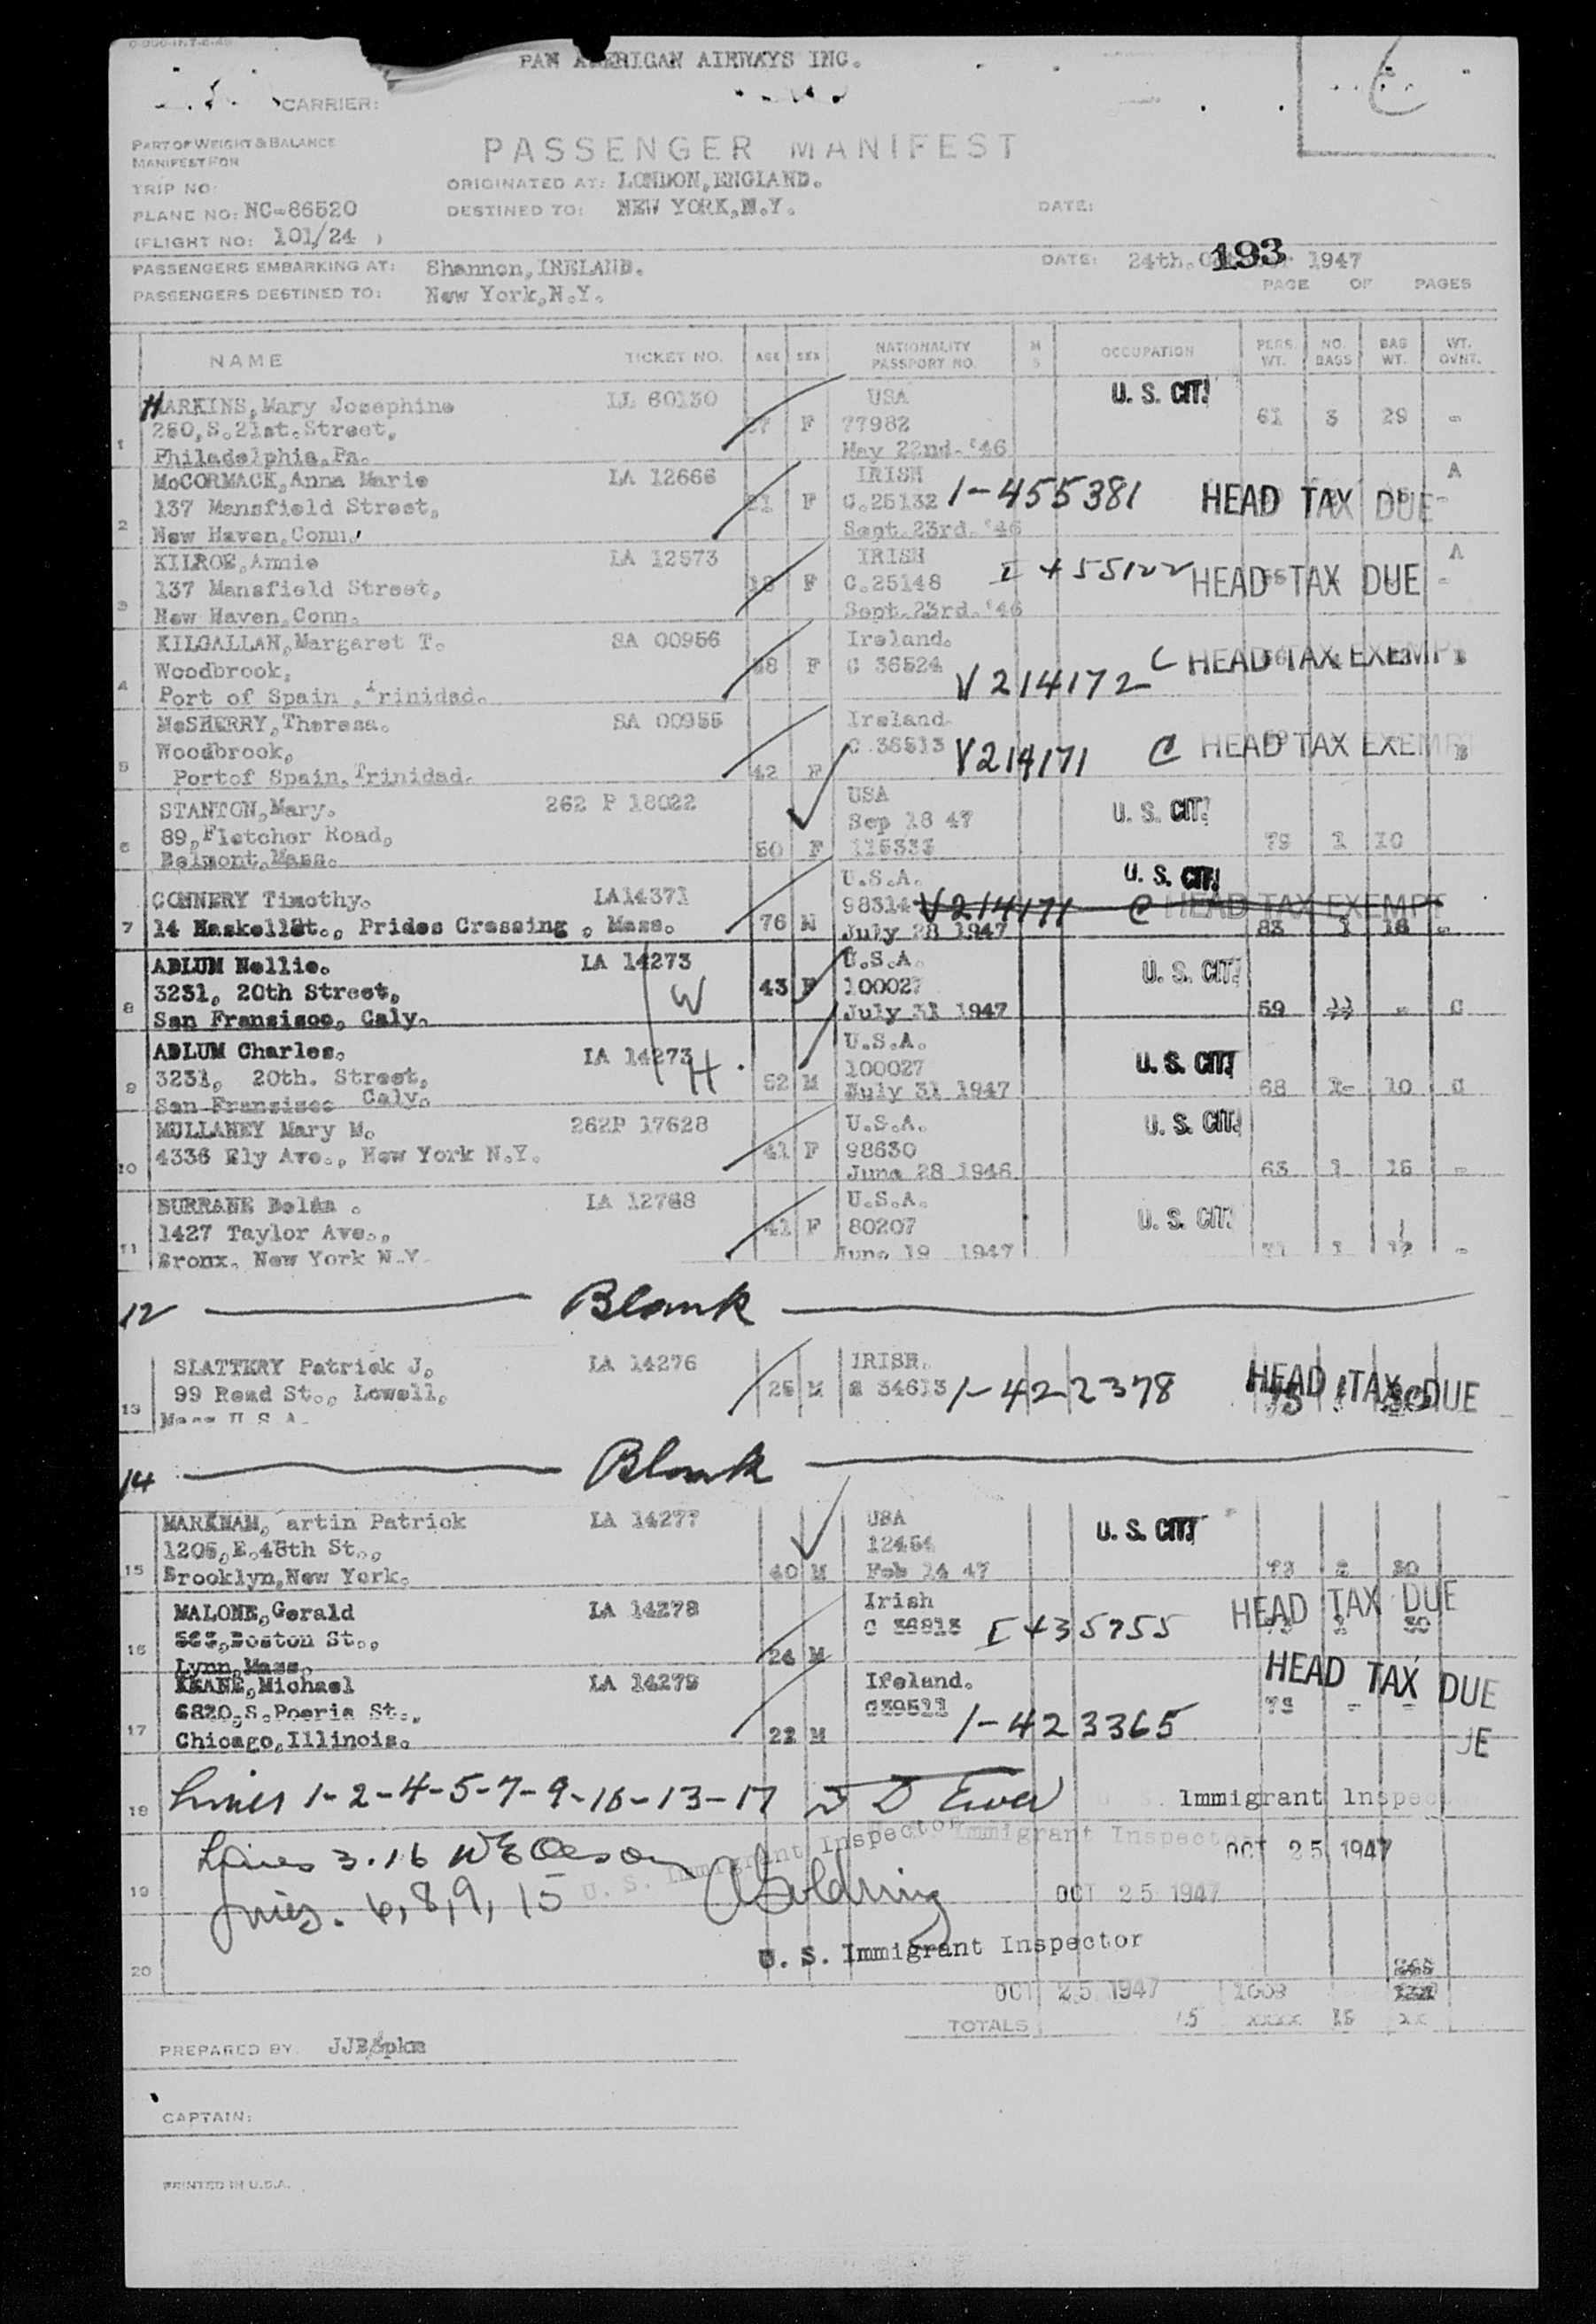 PAN AMERICAN AIRWAYS INC.
CARRIER:
PART OF WEIGHT & BALANCE
MANIFEST FOR
PASSENGER MANIFEST
TRIP NO:
ORIGINATED AT: LONDON,ENGLAND.
PLANE NO: NC-86520
DESTINED TO: NEW YORK,N.Y.
DATE:
(FLIGHT NO: 101/24 )
PASSENGERS EMBARKING AT: Shannon,IRELAND.
DATE: 24th. 193 1947
PASSENGERS DESTINED TO: New York,N.Y.
PAGE OF PAGES
NAME TICKET NO. AGE SEX NATIONALITY PASSPORT NO. M S OCCUPATION PERS. WT. NO. BAGS BAG WT. WT. OVNT.
HARKINS,Mary Josephine LL 60130 USA U. S. CIT.
250,S.21st.Street, F 77982 61 3 29 -
1 Philadelphia,Pa. May 22nd.'46
McCORMACK,Anna Marie LA 12666 IRISH A
137 Mansfield Street, 21 F C.25132 1-455381 HEAD TAX DUE
2 New Haven,Conn. Sept.23rd.'46
KILROE,Annie LA 12573 IRISH A
137 Mansfield Street, F C.25148 I 455122 HEAD TAX DUE
3 New Haven,Conn. Sept.23rd.'46
KILGALLAN,Margaret T. SA 00956 Ireland.
Woodbrook, F C 36524 V214172 C HEAD TAX EXEMPT
4 Port of Spain ,Trinidad.
McSHERRY,Theresa. SA 00955 Ireland.
Woodbrook, C 36513 V214171 C HEAD TAX EXEMPT
5 Portof Spain,Trinidad. 42 F
STANTON,Mary. 262 P 18022 USA U. S. CIT.
89,Fletcher Road, Sep 18 47
6 Belmont,Mass. 50 F 79 1 10
CONNERY Timothy. LA14371 U.S.A. U. S. CIT.
98314 V214171 C HEAD TAX EXEMPT
7 14 HaskellSt., Prides Crossing , Mass. 76 M July 28 1947 83 1 18 -
ADLUM Nellie. LA 14273 U.S.A. U. S. CIT.
3231, 20th Street, W 43 F 100027
8 San Fransisco, Caly. July 31 1947 59 - C
ADLUM Charles. LA 14273 U.S.A. U. S. CIT.
3231, 20th. Street, H 100027
9 San Fransisco Caly. 52 M July 31 1947 68 1- 10 C
MULLANEY Mary M. 262P 17628 U.S.A. U. S. CIT.
4336 Ely Ave., New York N.Y. 41 F 98630
10 June 28 1946 63 1 15 -
BURRANE Delia . LA 12768 U.S.A. U. S. CIT.
1427 Taylor Ave., 41 F 80207
11 Bronx, New York N.Y. June 19 1947 71 1 -
12 Blank
SLATTERY Patrick J. LA 14276 IRISH.
99 Read St., Lowell, 25 M 34613 1-422378 HEAD TAX DUE
13 Mass U S A.
14 Blank
MARKHAM, artin Patrick LA 14277 USA U. S. CIT.
1205,E.45th St.,
15 Brooklyn,New York. 40 M Feb 14 47 73 2 30
MALONE,Gerald LA 14278 Irish HEAD TAX DUE
563,Boston St., I 435755
16 Lynn,Mass. M
KEANE,Michael LA 14279 Ireland. HEAD TAX DUE
6820,S.Peoria St., 1-423365
17 Chicago,Illinois. 22 M UE
18 Lines 1-2-4-5-7-9-10-13-17 Immigrant Inspec
Lines 3.16 U. S. Immigrant Inspector Immigrant Inspector OCT 25 1947
19 Lines. 6,8,9, 15 OCT 25 1947
20 U. S. Immigrant Inspector
OCT 25 1947
TOTALS 15
PREPARED BY
CAPTAIN:
PRINTED IN U.S.A.